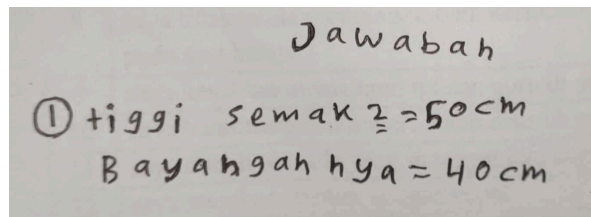 Jawabah
① tiggi semak2 = 50 cm
Bayahgah hya = 40 cm